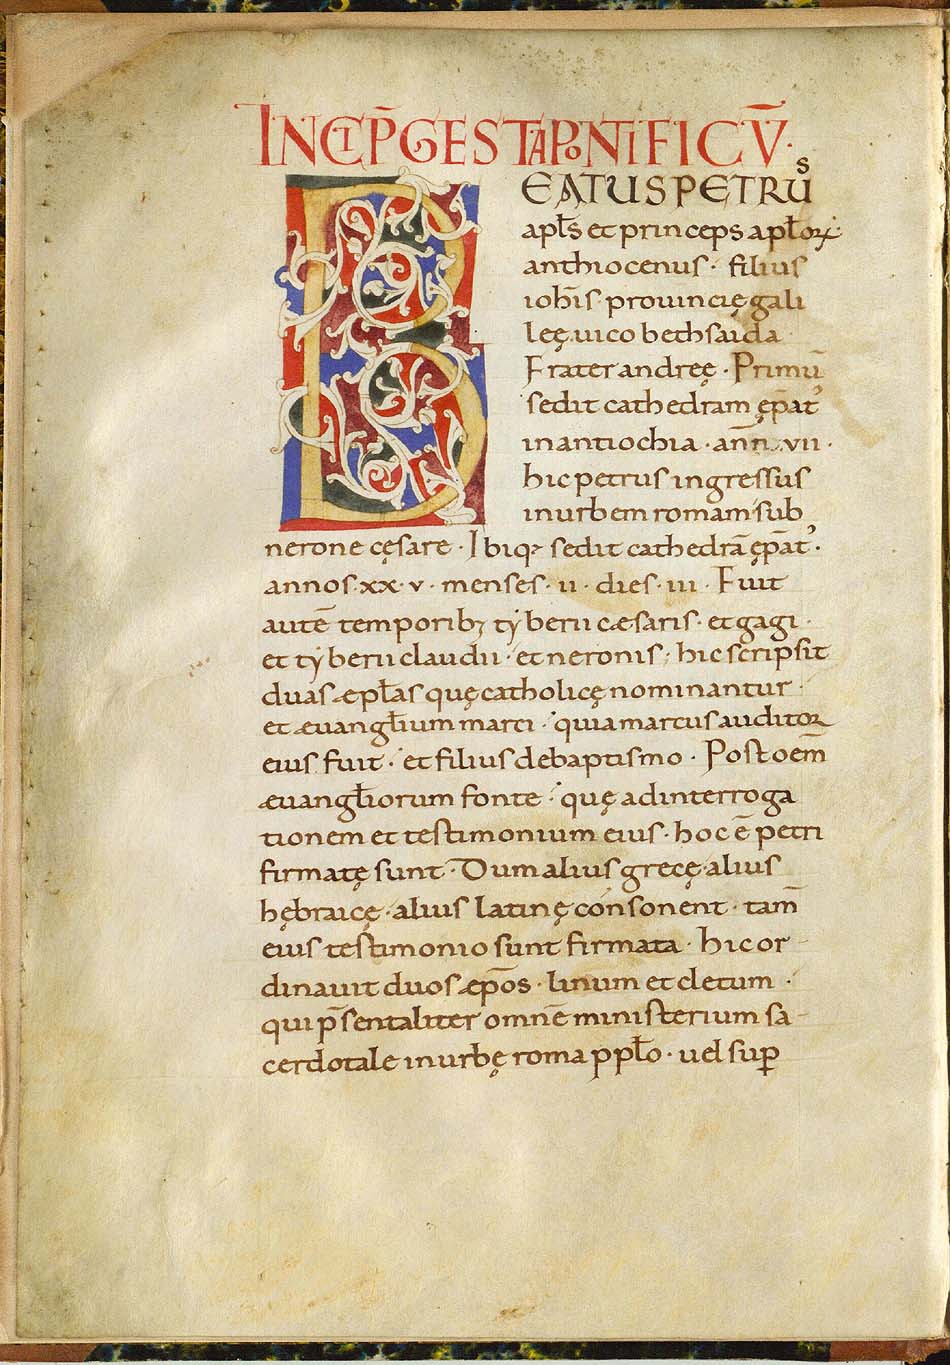 INCIP̄ GESTA PONTIFICV̄·
BEATUS PETRUS
apl̄s et princeps apl̄oꝝ·
anthiocenus· filius
ioh̄is· prouincię gali
leę. uico bethsaida
Frater andreę· Primū
sedit cathedram ep̄atꝰ
in antiochia· ann̄. vii·
hic petrus ingressus
in urbem romam sub
nerone cęsare· Ibiq; sedit cathedrā ep̄atꝰ·
annos· xx· v· menses· ii· dies· iii· Fuit
autē temporibꝫ tẏberii cæsaris· et gagi·
et tẏberii claudii· et neronis· hic scripsit
duas æpl̄as quę catholicę nominantur·
et æuangl̄ium marci· quia marcus auditor
eius fuit· et filius de baptismo· Post oem̄
æuangl̄iorum fonte· quę ad interroga
tionem et testimonium eius· hoc ē petri
firmatę sunt· Dum alius grecę· alius
hębraicę· alius latinę consonent· tam̄
eius testimonio sunt firmata· hic or-
dinauit duos æp̄os· linum et cletum·
qui p̄sentaliter omnē ministerium sa-
cerdotale in urbę roma ppl̄o· uel suꝑ